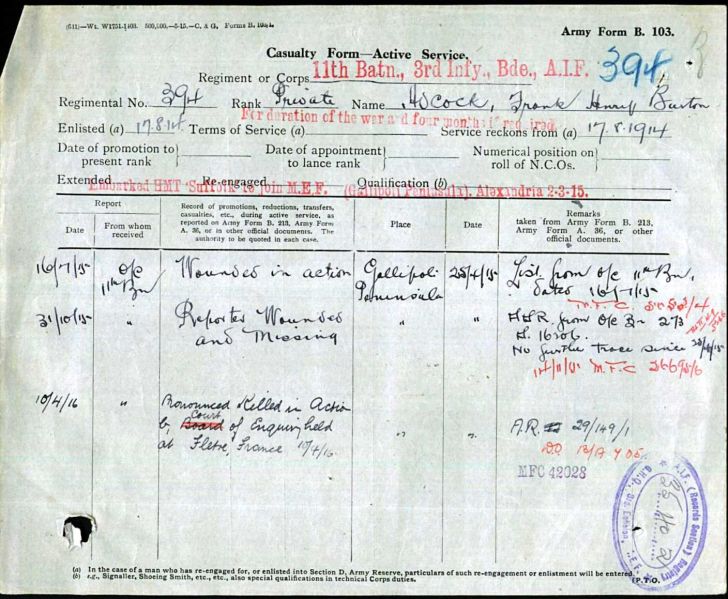 (611)—Wt. W1751-1103. 500,000.—5-15.—C. & G. Forms B. 103/1.
Army Form B. 103.
Casualty Form—Active Service.
Regiment or Corps 11th Batn., 3rd Infy., Bde., A.I.F. 394
Regimental No. 394 Rank Private Name Adcock, Frank Henry Burton
For duration of the war and four months if required.
Enlisted (a) 17.8.14. Terms of Service (a) Service reckons from (a) 17.8.1914
Date of promotion to present rank
Date of appointment to lance rank
Numerical position on roll of N.C.Os.
Extended Re-engaged Qualification (b)
Embarked HMT "Suffolk" to join M.E.F. (Gallipoli Peninsula). Alexandria 2-3-15.
Report
Date
From whom received
Record of promotions, reductions, transfers,
casualties, etc., during active service, as
reported on Army Form B. 213, Army Form
A. 36, or in other official documents. The
authority to be quoted in each case.
Place
Date
Remarks
taken from Army Form B. 213,
Army Form A. 36, or other
official documents.
16/7/15 O/c 11th Bn Wounded in action Gallipoli Peninsula 25/4/15 List from O/c 11th Bn,
dated 16/7/15
M.F.C.
31/10/15 " Reported Wounded and Missing " " from O/c Bn 273
No further trace since
M.F.C
10/4/16 " Pronounced Killed in Action
by Board Court of Enquiry held
at Fletre, France 10/4/16.
" " A.R. 29/149/1
MFC 42028
A.I.F. (Records Section)
(a) In the case of a man who has re-engaged for, or enlisted into Section D, Army Reserve, particulars of such re-engagement or enlistment will be entered.
(b) e.g., Signaller, Shoeing Smith, etc., etc., also special qualifications in technical Corps duties.
[P.T.O.